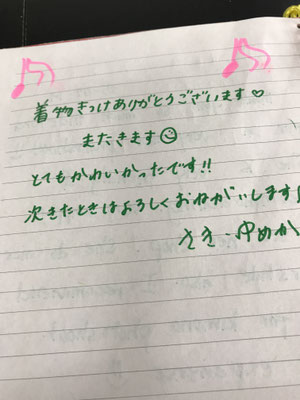 着物きつけありがとうございます♡
またきます☺
とてもかわいかったです!!
次きたときはよろしくおねがいします!
さき・ゆめか